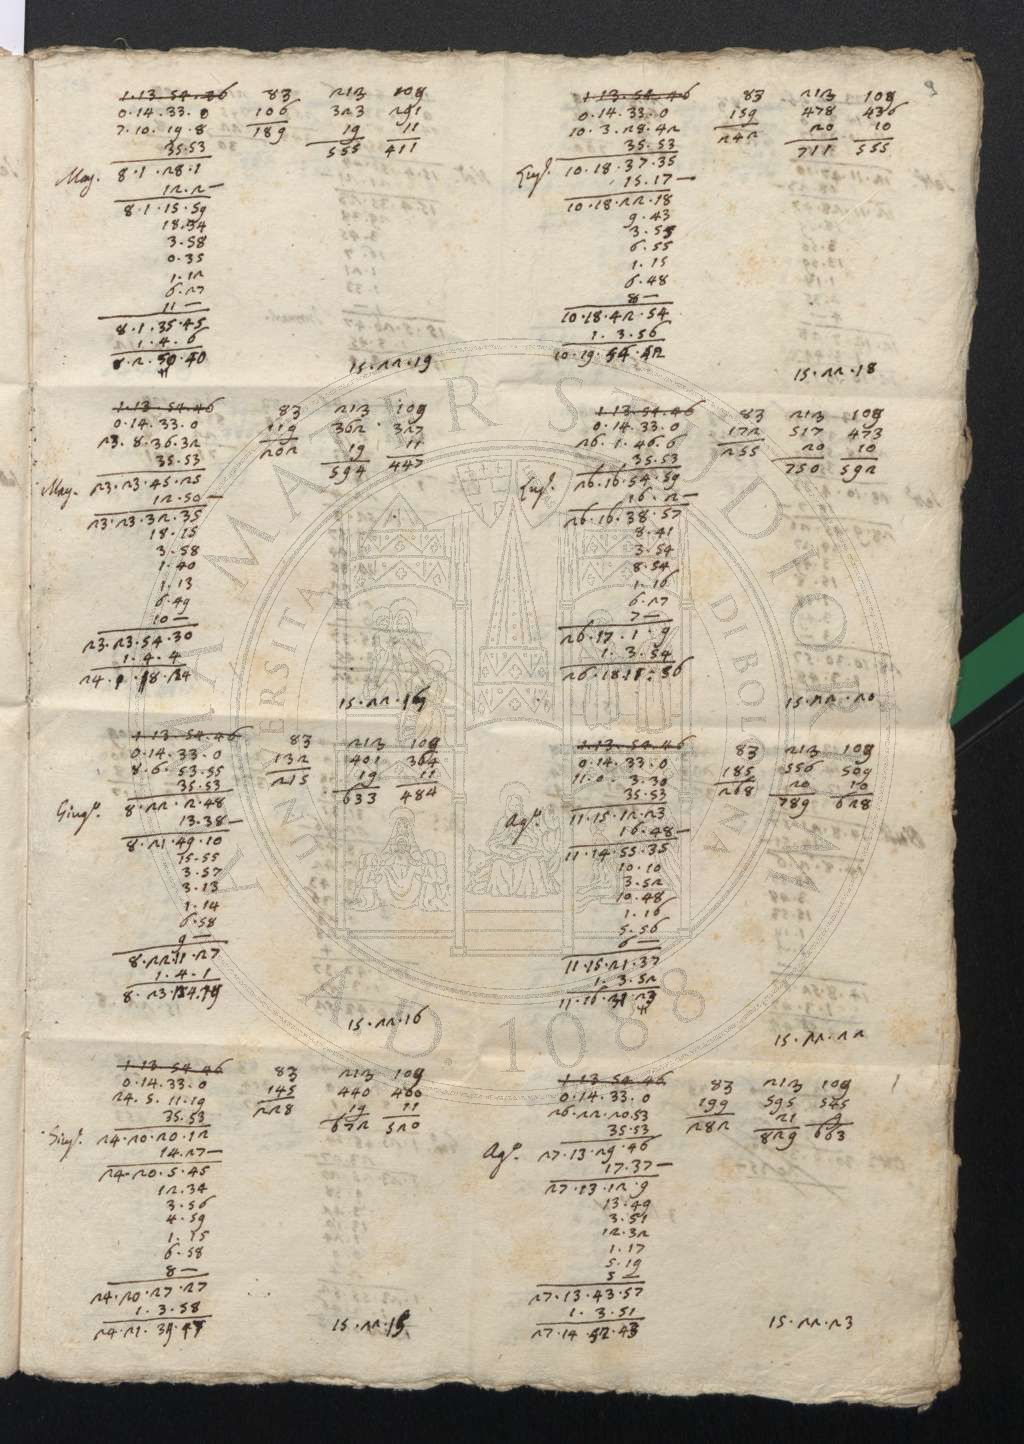 2
1.13.54.46 83 212 109
0.14.33.0 106 323 291
7.10.19.8 189 19 11
35.53 555 411
May. 8.1.28.1
12.2—
8.1.15.59
18.54
3.58
0.35
1.12
6.27
11—
8.1.35.45
1.4.6
8.2. .40
15.22.19
1.13.54.46 83 212 109
0.14.33.0 119 362 327
23.8.36.32 202 19 11
35.53 594 447
May. 23.23.45.25
12.50—
23.23.32.35
18.15
3.58
1.40
1.13
6.49
10—
23.23.54.30
1.4.4
15.22.
1.13.54.46 83 212 109
0.14.33.0 132 401 364
8.6.53.55 215 19 11
35.53 633 484
Giug.º 8.22.2.48
13.38—
8.21.49.10
15.55
3.57
3.13
1.14
6.58
9—
8.22.11.27
1.4.1
8.23.
15.22.16
1.13.54.46 83 212 109
0.14.33.0 145 440 400
24.5.11.19 228 19 11
35.53 672 520
Giug.º 24.20.20.12
14.27—
24.20.5.45
12.34
3.56
4.59
1.15
6.58
8—
24.20.27.27
1.3.58
24.21.
15.22.
1.13.54.46 83 212 109
0.14.33.0 159 478 436
10.3.28.42 242 20 10
35.53 711 555
Lugl. 10.18.37.35
15.17—
10.18.22.18
9.43
3.55
6.55
1.15
6.48
8—
10.18.42.54
1.3.56
10.19.
15.22.18
1.13.54.46 83 212 109
0.14.33.0 172 517 473
26.1.46.6 255 20 10
35.53 750 592
Lugl. 26.16.54.59
16.2—
26.16.38.57
8.41
3.54
8.54
1.16
6.27
7—
26.17.1.9
1.3.54
26.18.
15.22.20
1.13.54.46 83 212 109
0.14.33.0 185 556 509
11.0.3.30 268 20 10
35.53 789 628
Ag.º 11.15.12.23
16.48—
11.14.55.35
10.10
3.52
10.48
1.16
5.56
6—
11.15.21.37
1.3.52
11.16.
15.22.22
1.13.54.46 83 212 109
0.14.33.0 199 595 545
26.22.20.53 282 21 9
35.53 829 663
Ag.º 27.13.29.46
17.37—
27.13.12.9
13.49
3.51
12.32
1.17
5.19
5—
27.13.43.57
1.3.51
27.14.
15.22.23
ALMA MATER STUDIORUM
UNIVERSITÀ DI BOLOGNA
A.D. 1088